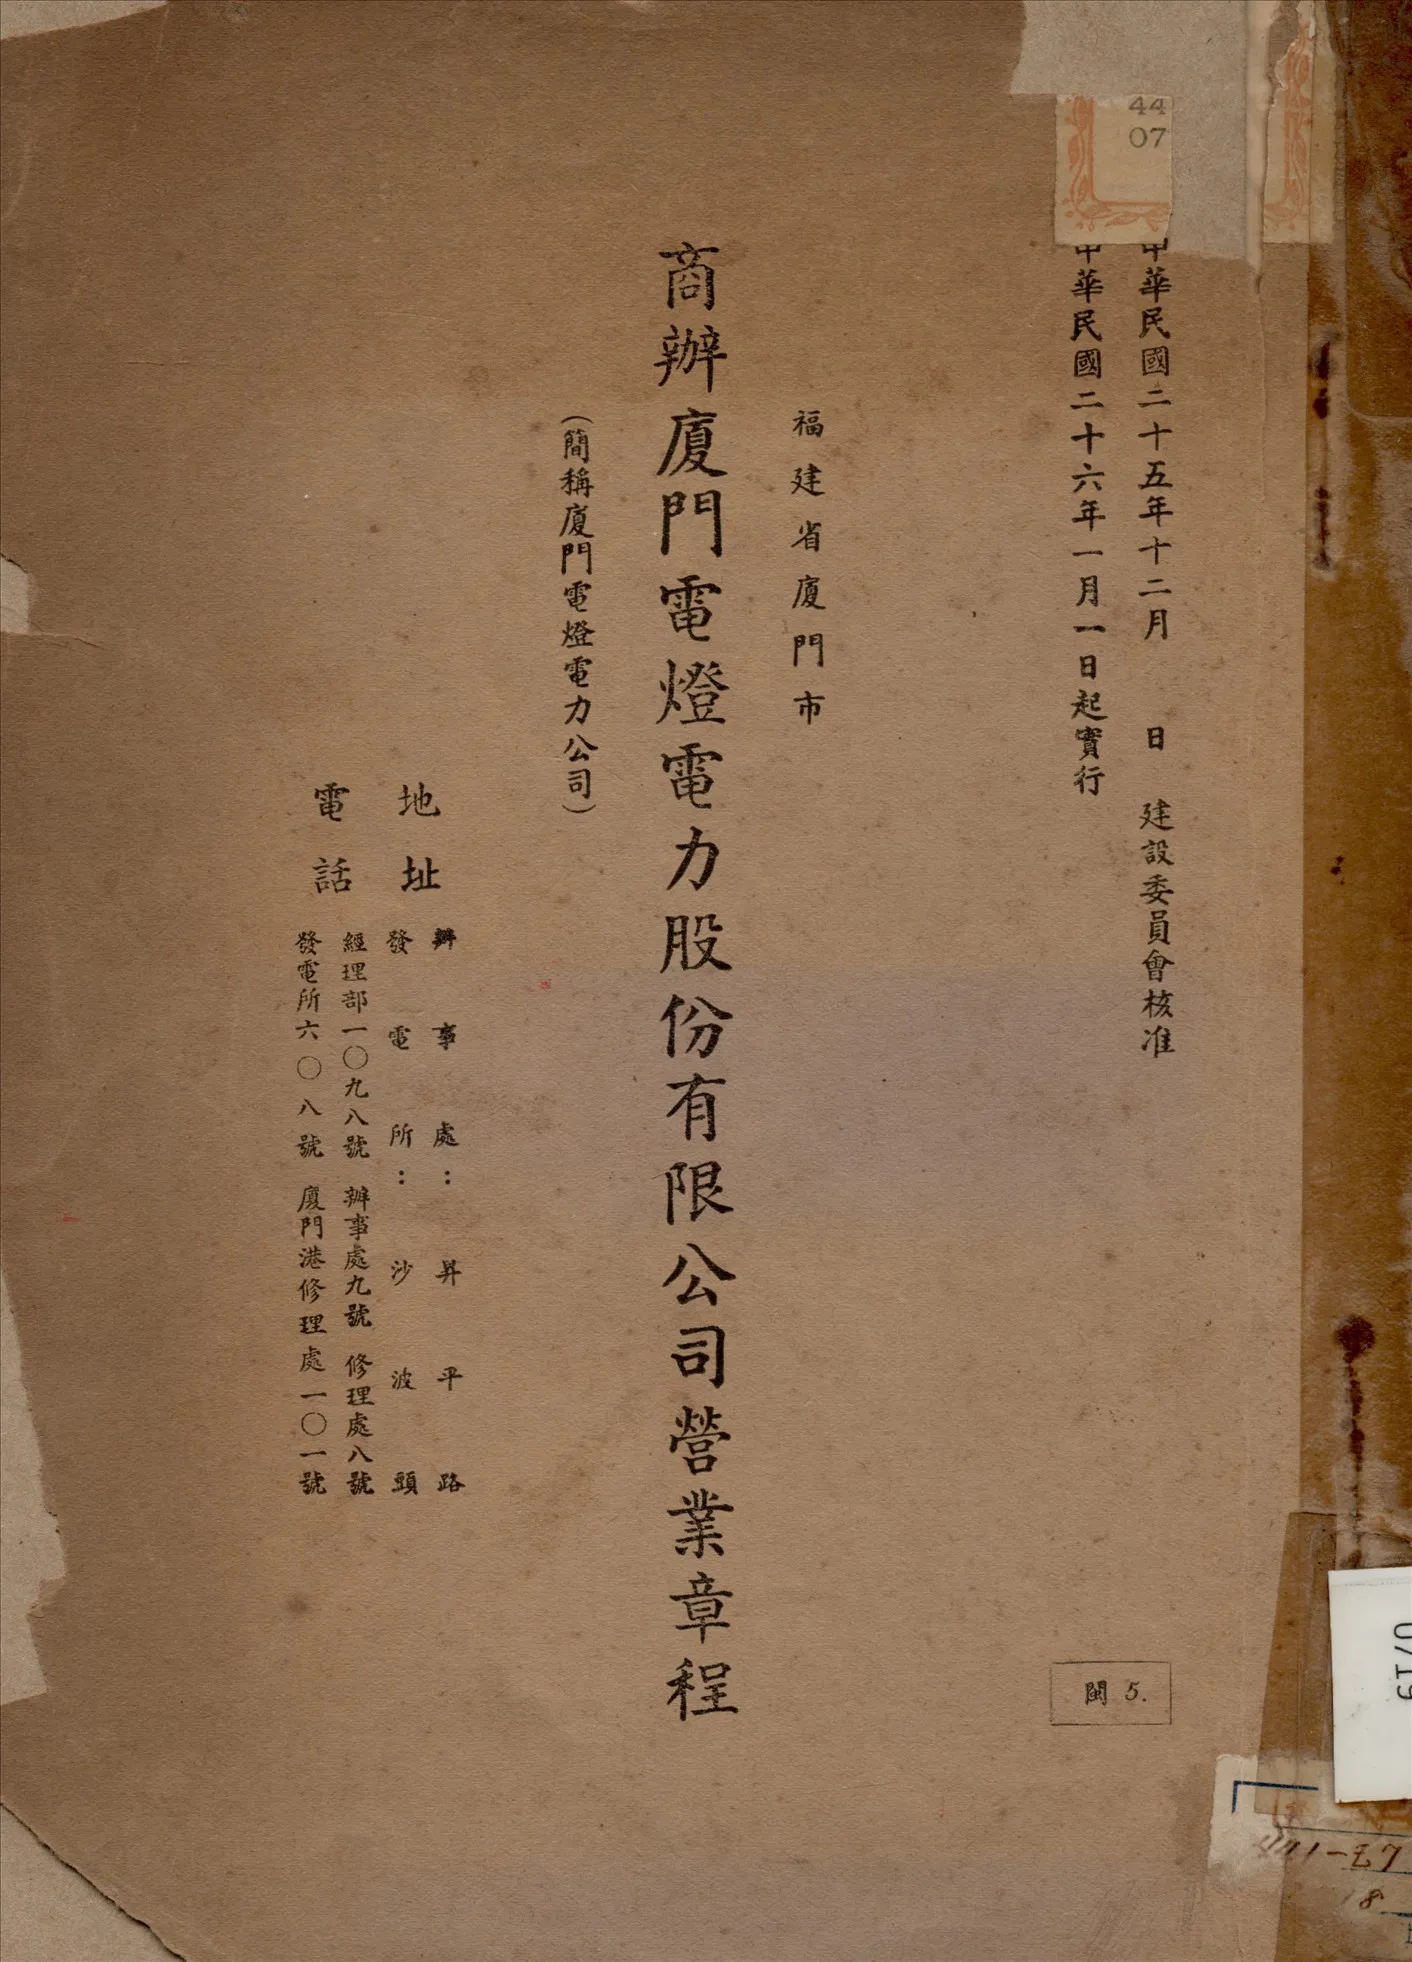 中華民國二十五年十二月　日　建設委員會核准
中華民國二十六年一月一日起實行
福建省廈門市
商辦廈門電燈電力股份有限公司營業章程
（簡稱廈門電燈電力公司）
地址
辦事處：昇平路
發電所：沙波頭
電話
經理部一〇九八號　辦事處九號　修理處八號
發電所六〇八號　廈門港修理處一〇一號
閩 5.
44
07